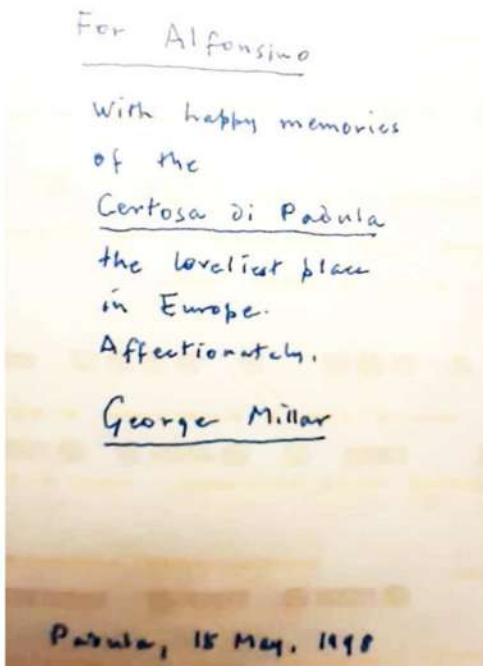 For Alfonsino
With happy memories
of the
Certosa di Padula
the loveliest place
in Europe.
Affectionately.
George Millar
Padula, 15 May, 1998